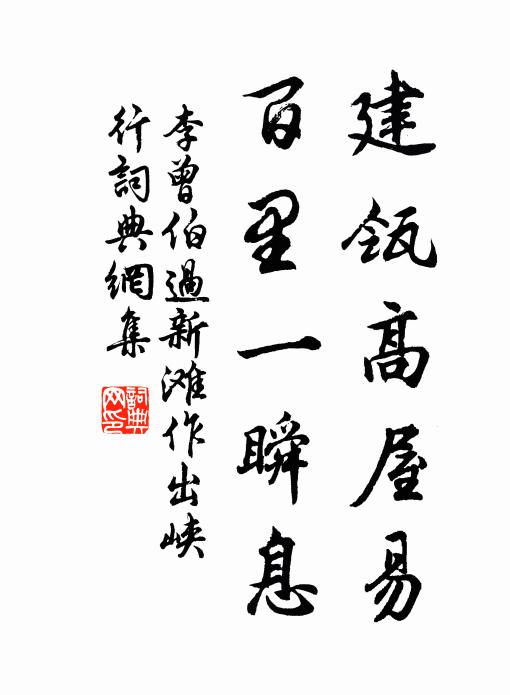 建瓴高屋易
百里一瞬息
李曾伯過新滩作出峡
行詞典網集
詞典网印